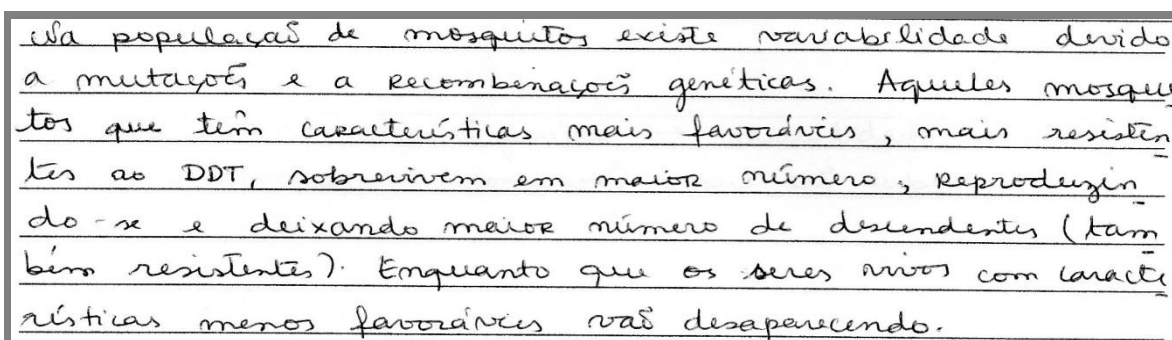 Na população de mosquitos existe variabilidade devido
a mutações e a recombinações genéticas. Aqueles mosqui
tos que têm características mais favoráveis, mais resisten
tes ao DDT, sobrevivem em maior número, reproduzin
do-se e deixando maior número de descendentes (tam
bém resistentes). Enquanto que os seres vivos com caracte
rísticas menos favoráveis vão desaparecendo.